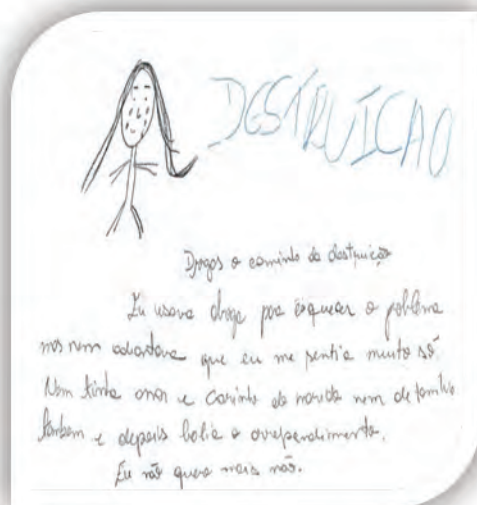 DESTRUICAO
Drogas o caminho da destruição
Eu usava droga pra esquecer o poblema
mas nem adiantava que eu me sentia muito só.
Nem tinha amor e carinho do marido nem de familia
tambem e depois batia o arrependimento.
Eu não quero mais não.